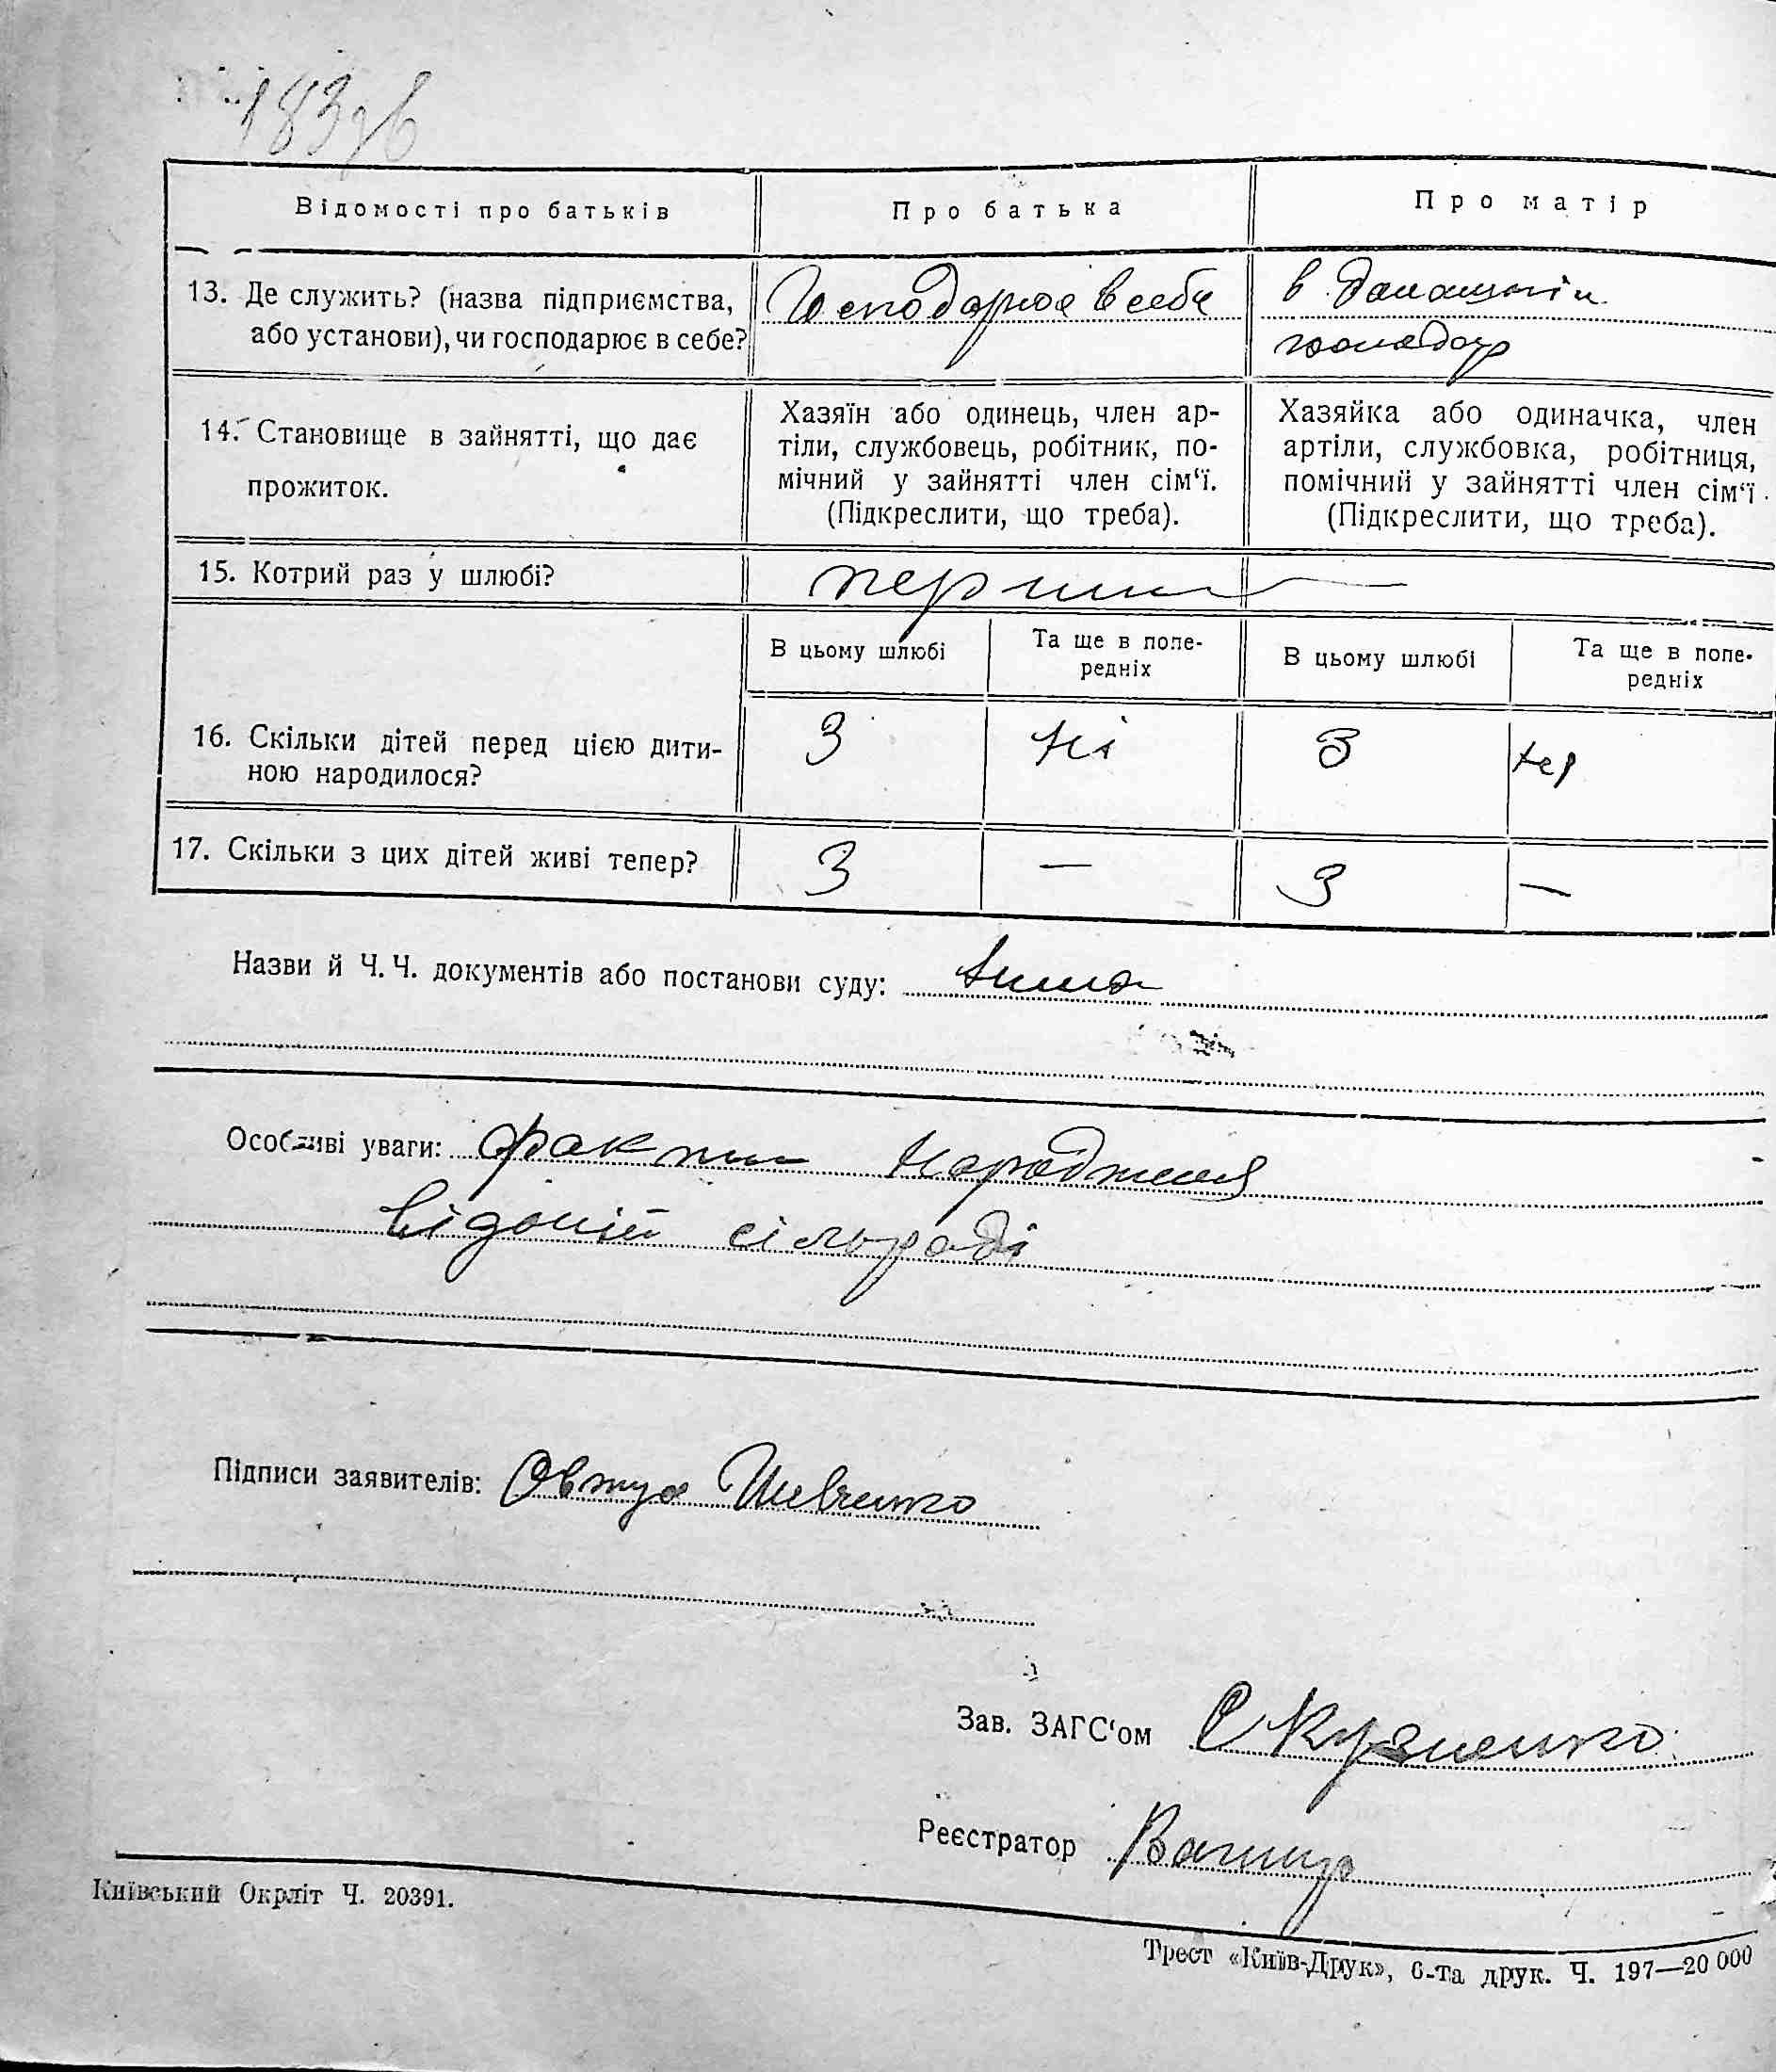 183зв
Відомості про батьків
Про батька
Про матір
13. Де служить? (назва підприємства,
або установи), чи господарює в себе?
Господарює в себе
в домашнім
господар
14. Становище в зайнятті, що дає
прожиток.
Хазяїн або одинець, член ар-
тіли, службовець, робітник, по-
мічний у зайнятті член сім'ї.
(Підкреслити, що треба).
Хазяйка або одиначка, член
артіли, службовка, робітниця,
помічний у зайнятті член сім'ї.
(Підкреслити, що треба).
15. Котрий раз у шлюбі?
перший —
В цьому шлюбі
Та ще в попе-
редніх
В цьому шлюбі
Та ще в попе-
редніх
16. Скільки дітей перед цією дити-
ною народилося?
3
ні
3
17. Скільки з цих дітей живі тепер?
3
—
3
—
Назви й Ч. Ч. документів або постанови суду: нима
Особливі уваги: факт народження
відомий сільраді
Підписи заявителів: Овтух Шевченко
Зав. ЗАГС'ом
Реєстратор
Київський Окрліт Ч. 20391.
Трест «Київ-Друк», 6-та друк. Ч. 197—20 000